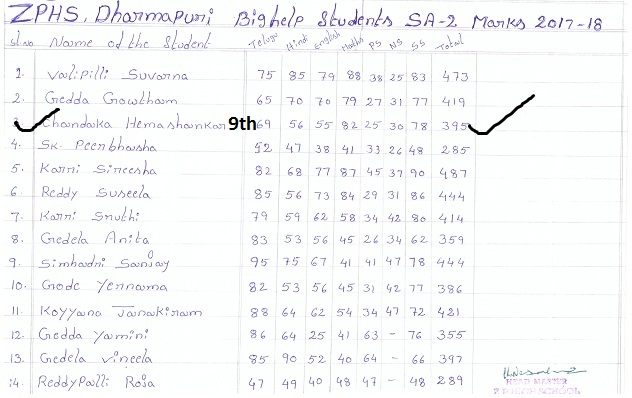 ZPHS, Dharmapuri Bighelp Students SA-2 Marks 2017-18
Sl.no Name of the Student Telugu Hindi English Maths PS NS SS Total
1. Valipilli Suvarna 75 85 79 88 38 25 83 473
2. Gedda Gowtham 65 70 70 79 27 31 77 419
3. Chandaka Hemashankar 9th 69 56 55 82 25 30 78 395
4. Sk. Peerbhasha 52 47 38 41 33 26 48 285
5. Karri Sireesha 82 68 77 87 45 37 90 487
6. Reddy Suseela 85 56 73 84 29 31 86 444
7. Karri Sruthi 79 59 62 58 34 42 80 414
8. Gedela Anita 83 53 56 45 26 34 62 359
9. Simhadri Sanjay 95 75 67 41 41 47 78 444
10. Gode Yerrama 82 53 56 45 31 42 77 386
11. Koyyana Janakiram 88 64 62 54 34 47 72 421
12. Gedda Yamini 86 64 25 41 63 - 76 355
13. Gedela Vineela 85 90 52 40 64 - 66 397
14. ReddyPalli Roja 47 49 40 48 47 - 48 289
HEAD MASTER
Z.P.HIGH SCHOOL